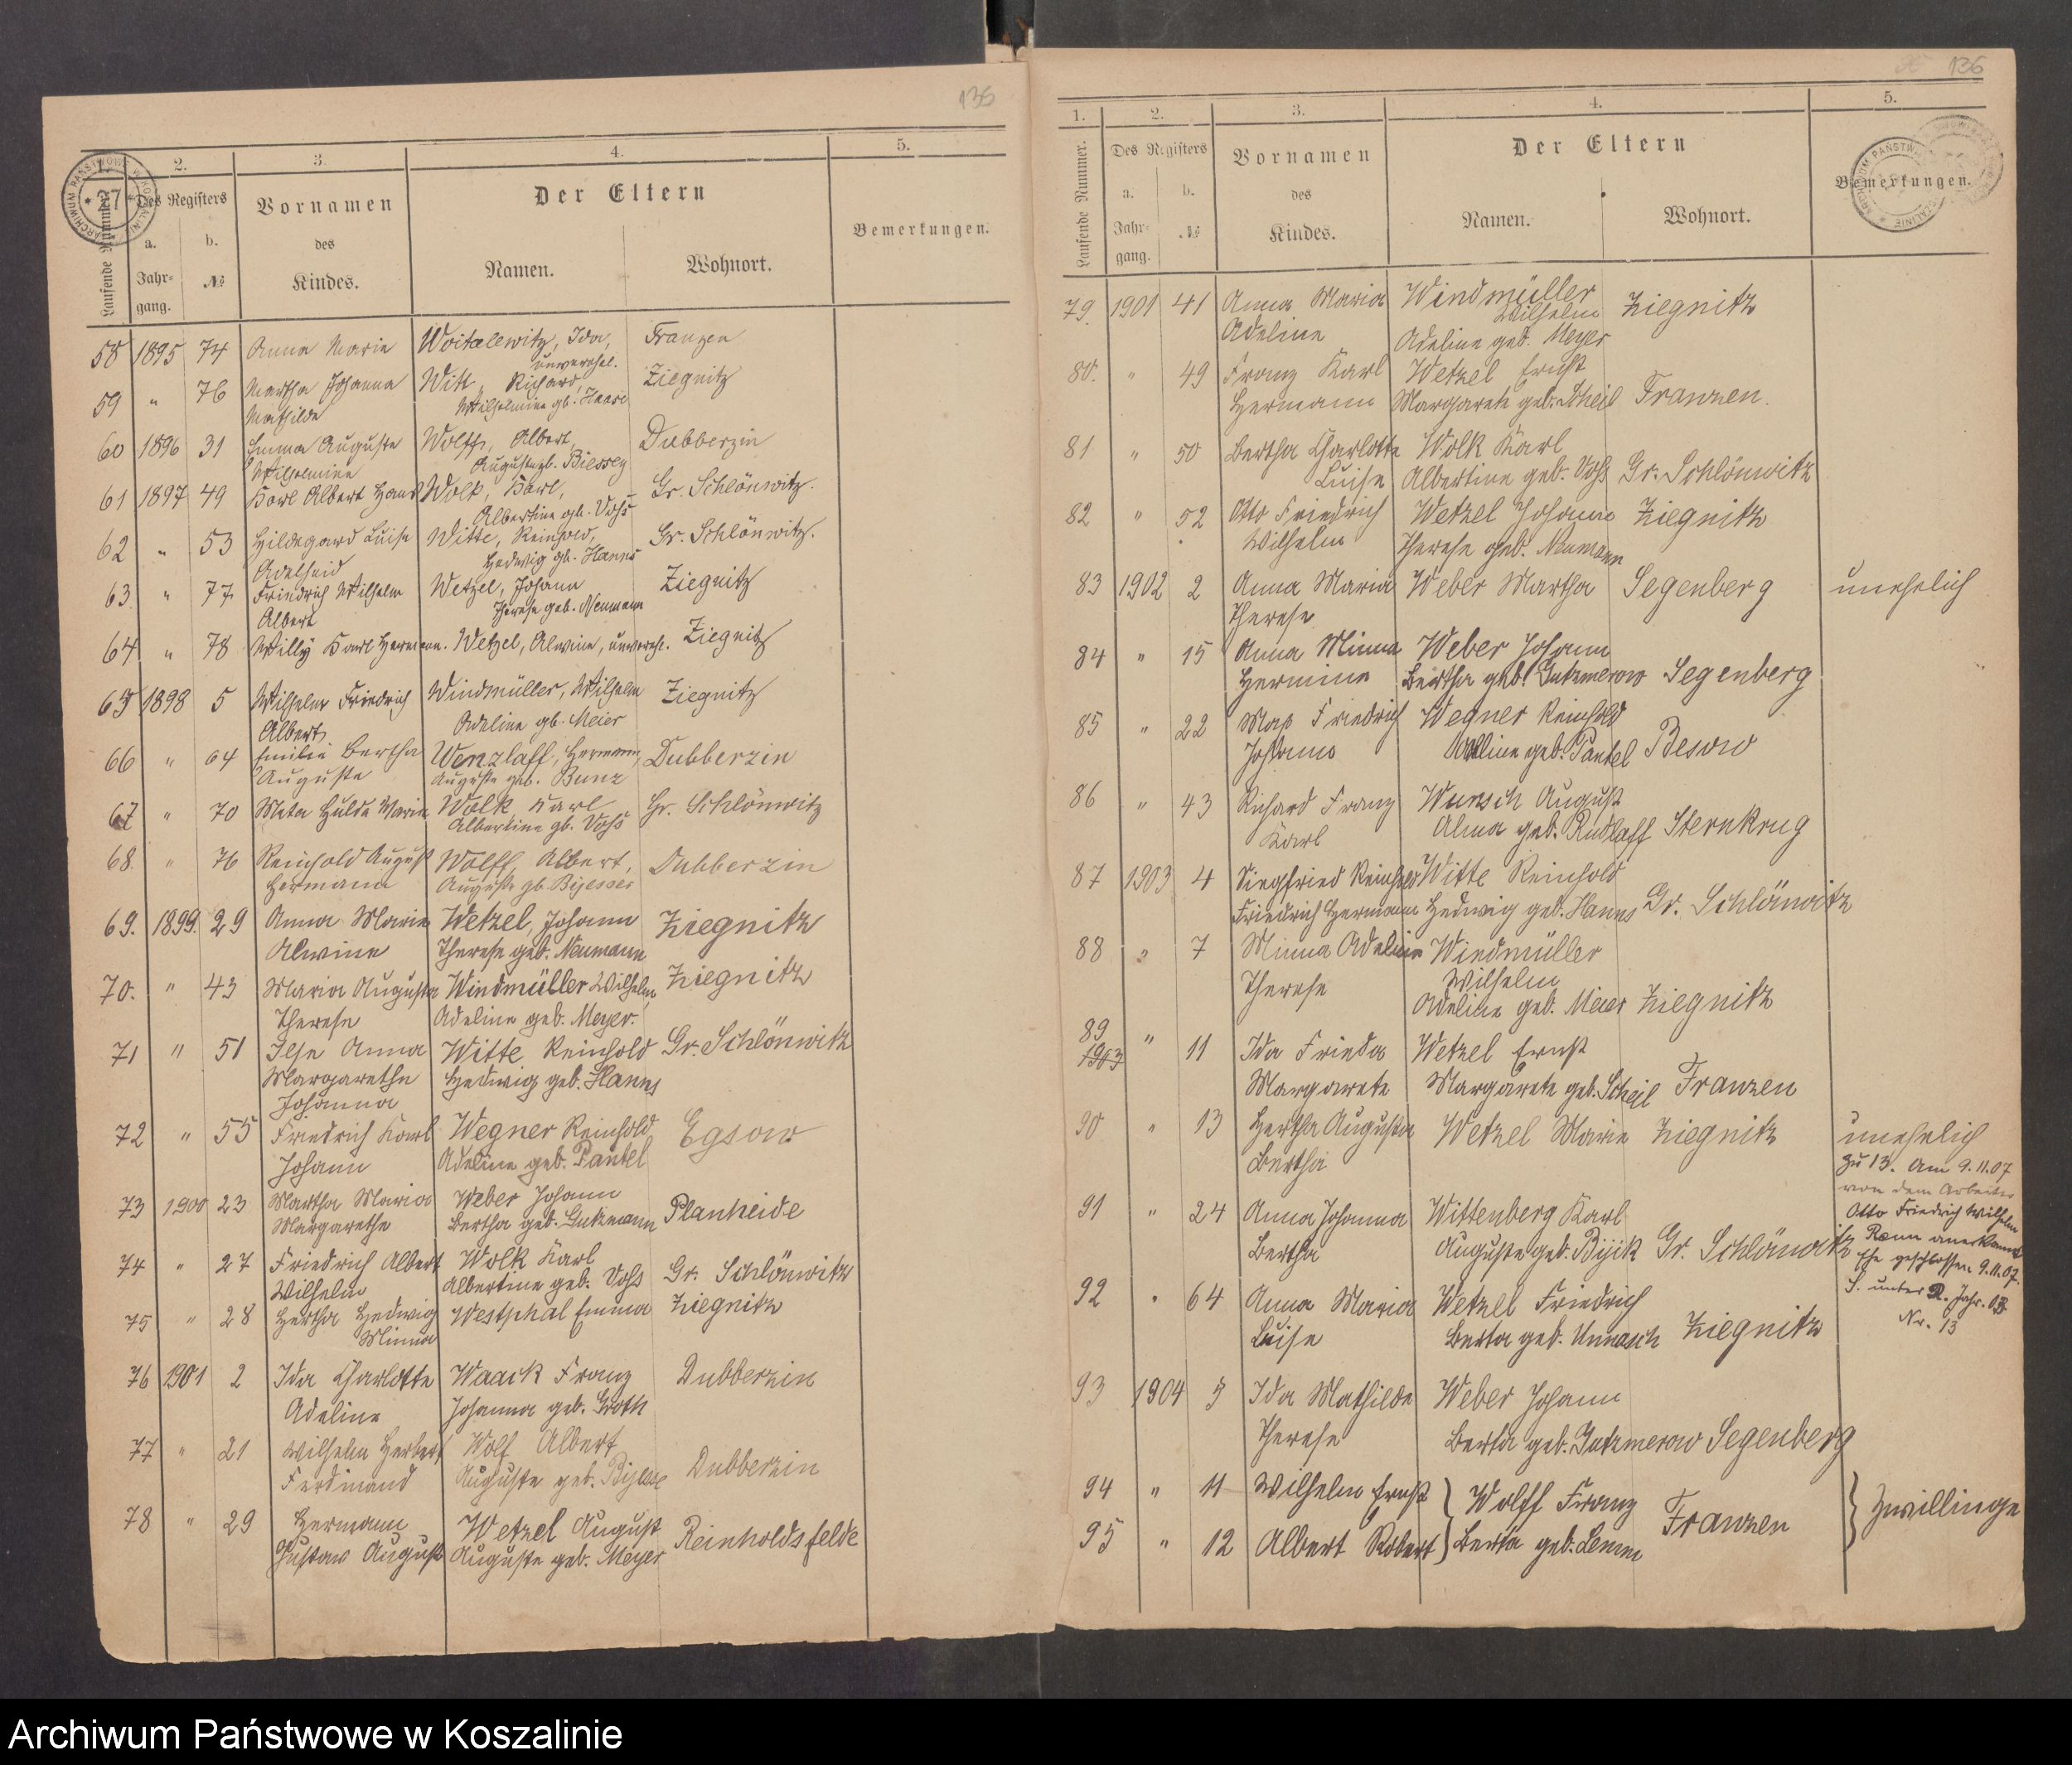 135
1. 2. 3. 4. 5.
Laufende Nummer.
Des Registers
a. Jahrgang.
b. №
Vornamen
des
Kindes.
Der Eltern
Namen.
Wohnort.
Bemerkungen.
27
58 1895 74 Anna Marie Woitalewitz, Ida, Franzen
unverehel.
59 " 76 Martha Johanna Witt, Richard, Ziegnitz
Mathilde Wilhelmine gb. Haase
60 1896 31 Emma Auguste Wolff, Albert, Dubberzin
Wilhelmine Auguste gb.
61 1897 49 Karl Albert Hans Wolk, Karl, Gr. Schlönwitz.
Albertine gb. Voß
62 " 53 Hildegard Luise Witte, Reinhold, Gr. Schlönwitz.
Adelheid Hedwig gb. Hanns
63 " 77 Friedrich Wilhelm Wetzel, Johann Ziegnitz
Albert Therese geb. Neumann
64 " 78 Willy Karl Hermann. Wetzel, Alwine, unverehl. Ziegnitz
65 1898 5 Wilhelm Friedrich Windmüller, Wilhelm Ziegnitz
Albert Adeline gb. Meier
66 " 64 Emilie Bertha Wenzlaff, Hermann, Dubberzin
Auguste Auguste geb. Bunz
67 " 70 Meta Hulda Marie Wolk Karl Gr. Schlönwitz
Albertine gb. Voß
68. " 76 Reinhold August Wolff, Albert, Dubberzin
Hermann Auguste gb.
69. 1899. 29 Anna Marie Wetzel, Johann Ziegnitz
Alwine Therese geb. Neumann
70. " 43 Maria Auguste Windmüller Wilhelm, Ziegnitz
Therese Adeline geb. Meyer.
71 " 51 Ilse Anna Witte Reinhold Gr. Schlönwitz
Margarethe Hedwig geb. Hanns
Johanna
72 " 55 Friedrich Karl Wegner Reinhold Egsow
Johann Adeline geb. Pantel
73 1900 23 Martha Maria Weber Johann Planheide
Margarethe Bertha geb.
74 " 27 Friedrich Albert Wolk Karl Gr. Schlönwitz
Wilhelm Albertine geb. Voß
75 " 28 Hertha Hedwig Westphal Emma Ziegnitz
Minna
76 1901 2 Ida Charlotte Waack Franz Dubberzin
Adeline Johanna geb. Groth
77 " 21 Wilhelm Herbert Wolf Albert Dubberzin
Ferdinand Auguste geb.
78 " 29 Hermann Wetzel August Reinholdsfelde
Gustav August Auguste geb. Meyer
136
1. 2. 3. 4. 5.
Laufende Nummer.
Des Registers
a. Jahrgang.
b. №
Vornamen
des
Kindes.
Der Eltern
Namen.
Wohnort.
Bemerkungen.
79. 1901 41 Anna Maria Windmüller Ziegnitz
Wilhelm
Adeline Adeline geb. Meyer
80. " 49 Franz Karl Wetzel Ernst
Hermann Margarete geb. Scheil Franzen.
81 " 50 Bertha Charlotte Wolk Karl
Luise Albertine geb. Voß Gr. Schlönwitz
82 " 52 Otto Friedrich Wetzel Johann Ziegnitz
Wilhelm Therese geb. Neumann
83 1902 2 Anna Maria Weber Martha Segenberg unehelich
Therese
84 " 15 Anna Minna Weber Johann
Hermine Bertha geb. Gutzmerow Segenberg
85 " 22 Max Friedrich Wegner Reinhold
Johann Adeline geb. Pantel Besow
86 " 43 Richard Franz Wunsch August
Karl Alma geb. Rudlaff Sternkrug
87 1903 4 Siegfried Reinhold Witte Reinhold
Friedrich Hermann Hedwig geb. Hanns Gr. Schlönwitz
88 " 7 Minna Adeline Windmüller
Wilhelm
Therese Adeline geb. Meier Ziegnitz
89 " 11 Ida Frieda Wetzel Ernst
1903
Margarete Margarete geb. Scheil Franzen
90 " 13 Hertha Auguste Wetzel Marie Ziegnitz unehelich
Bertha
zu 13. Am 9.11.07
von dem Arbeiter
Otto Friedrich Wilhelm
Ramm anerkannt
Ehe geschlossen 9.11.07.
S. unter R. Jahr. 03
Nr. 13
91 " 24 Anna Johanna Wittenberg Karl
Bertha Auguste geb. Gr. Schlönwitz
92 " 64 Anna Maria Wetzel Friedrich
Luise Berta geb. Unnasch Ziegnitz
93 1904 5 Ida Mathilde Weber Johann
Therese Berta geb. Gutzmerow Segenberg
94 " 11 Wilhelm Ernst } Wolff Franz Franzen } Zwillinge
95 " 12 Albert Robert } Berta geb. Lemm
Archiwum Państwowe w Koszalinie